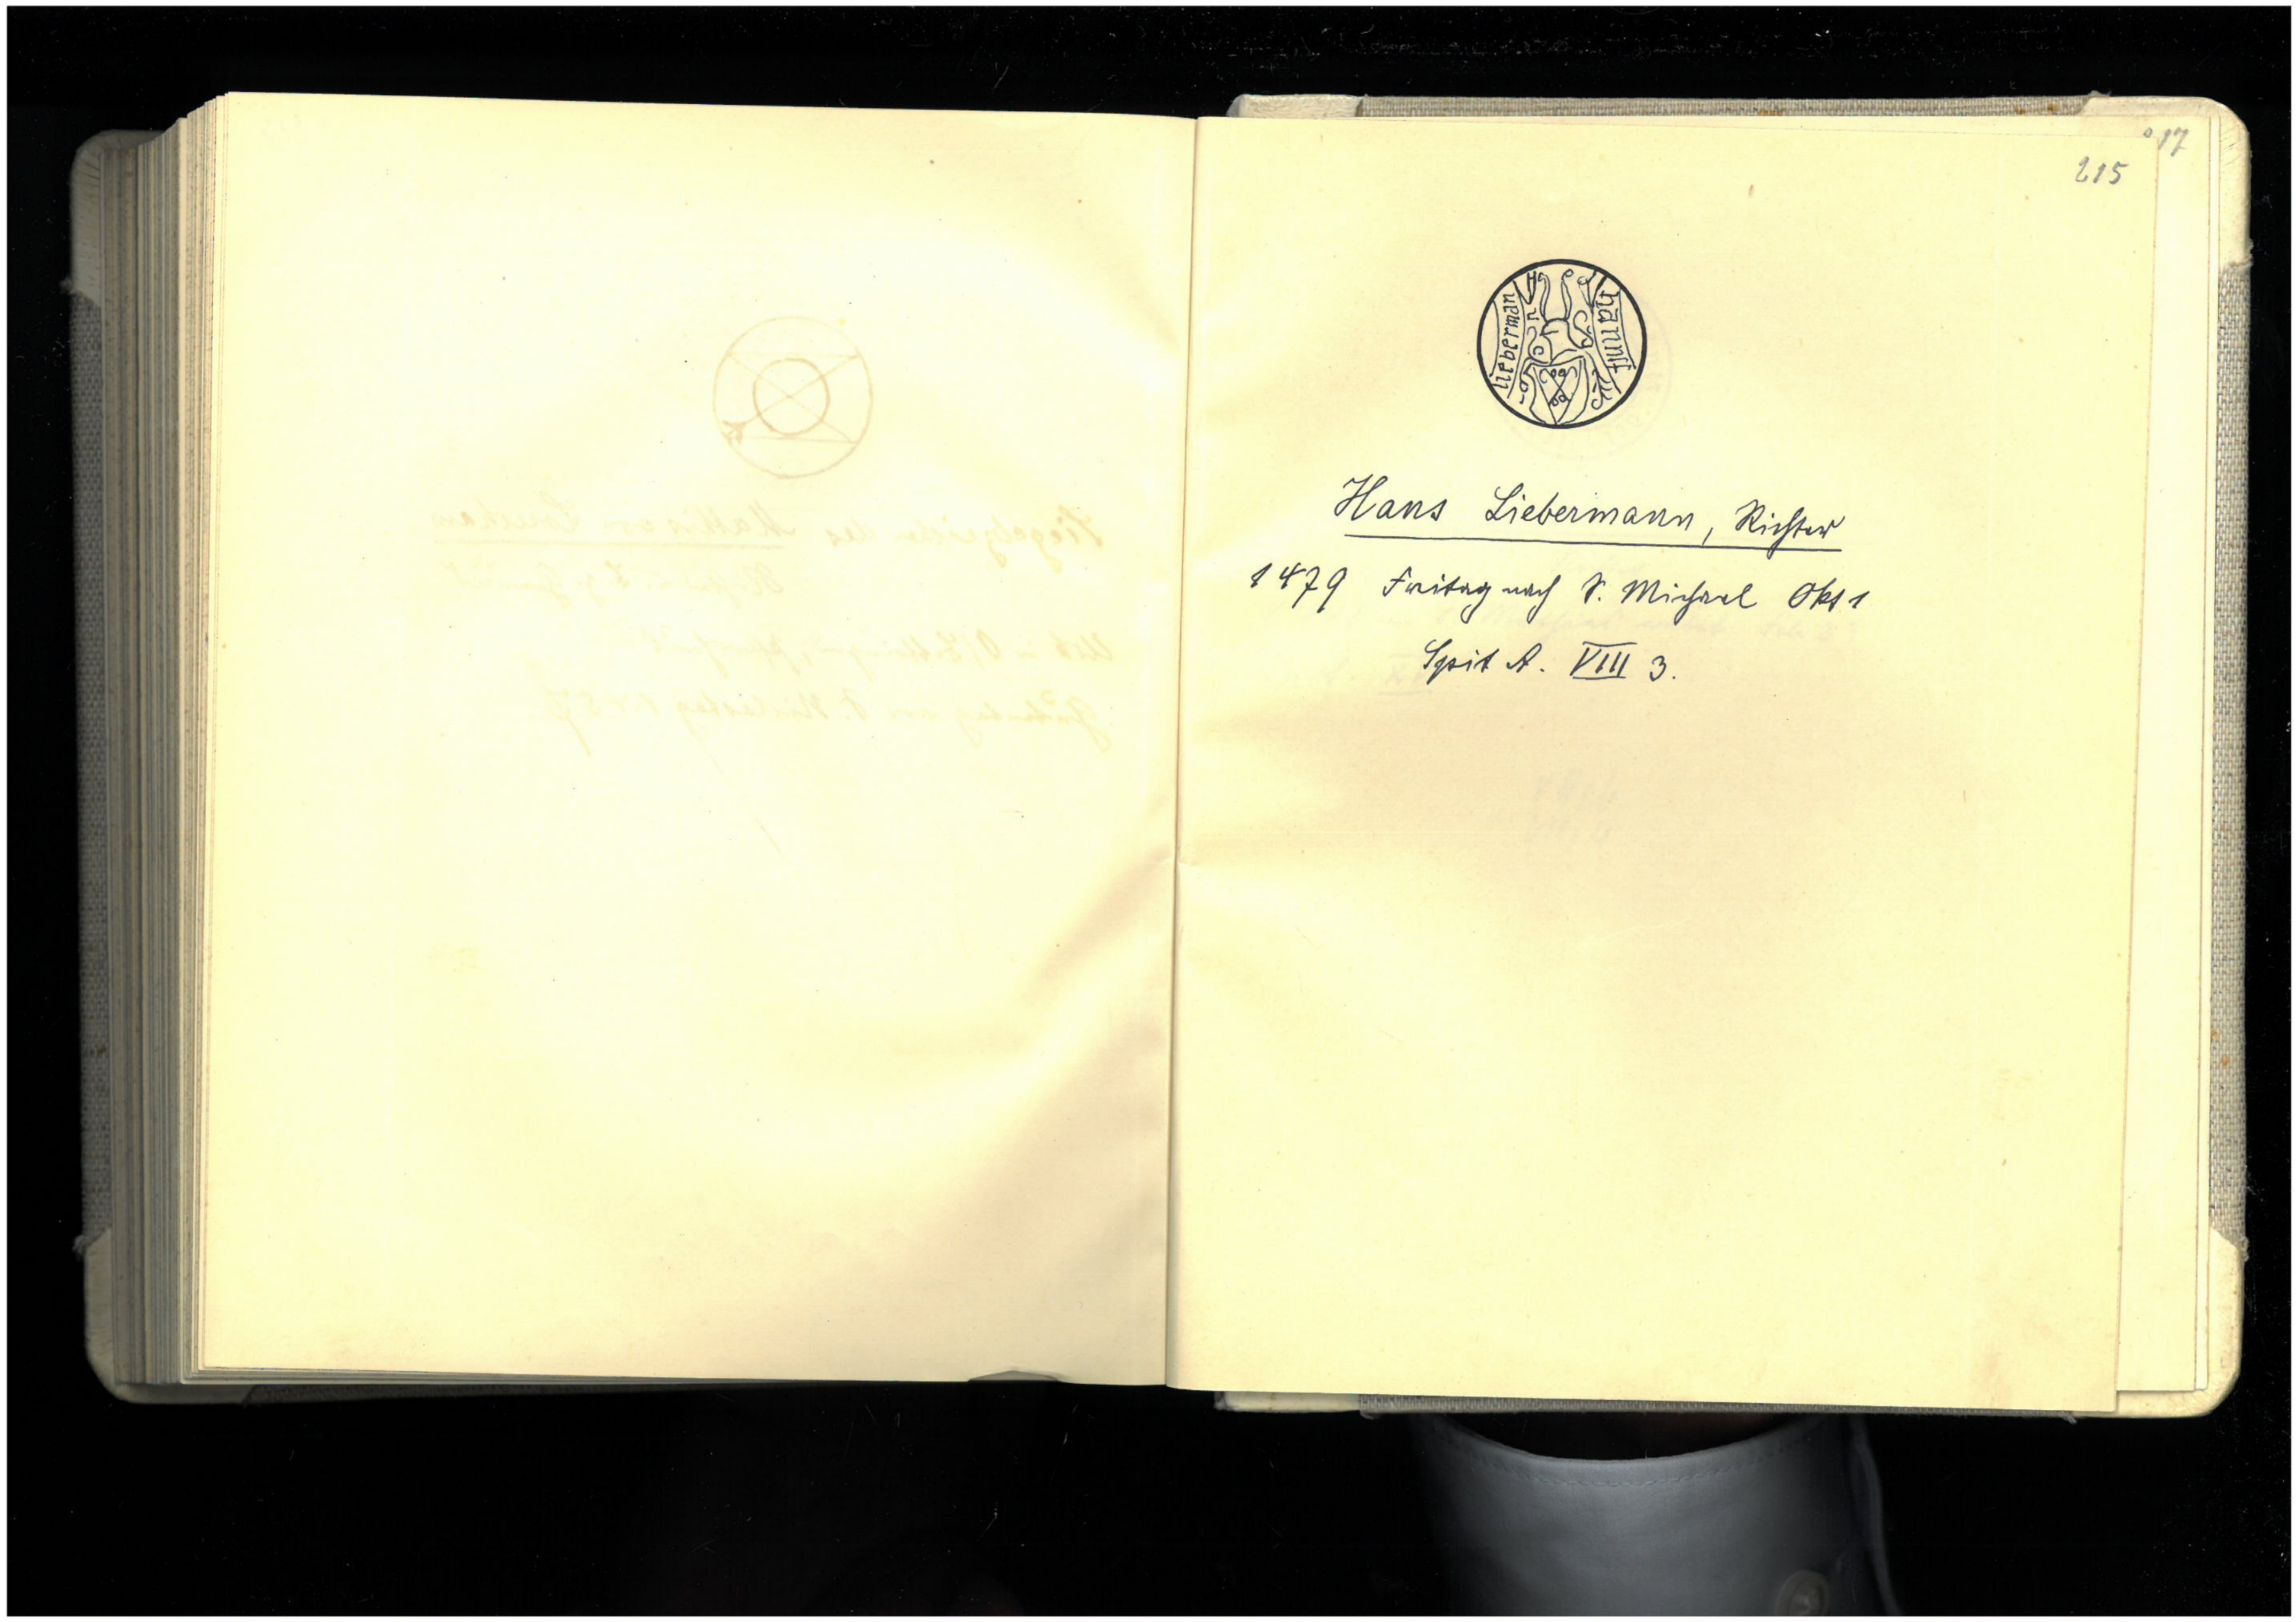 17
215
hannß
liebermann
Hans Liebermann, Richter
1479 Freitag nach S. Michael Okt 1
Spit A. VIII 3.